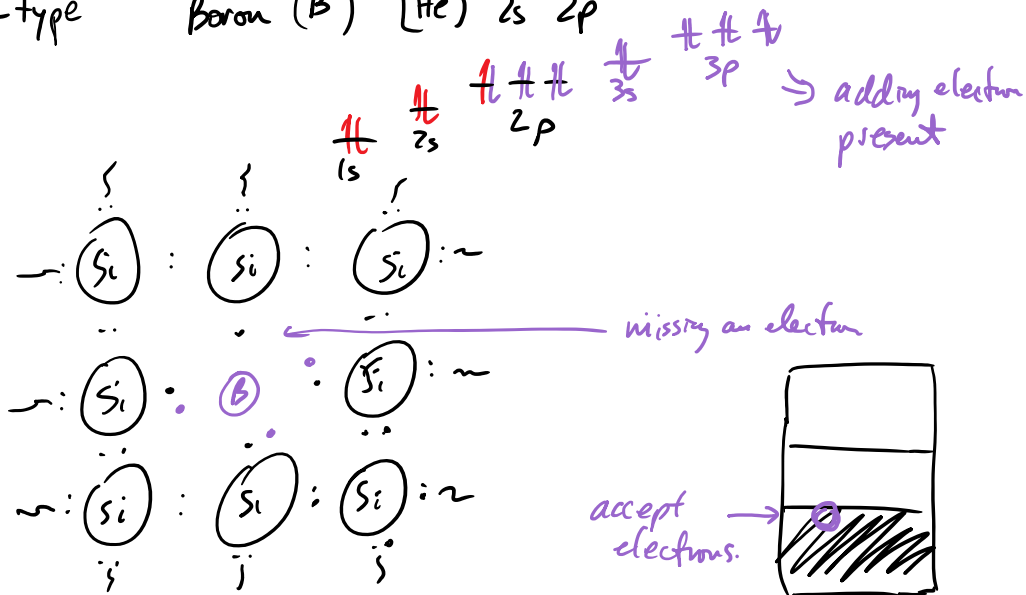 -type Boron (B) [He] 2s 2p
1s 2s 2p 3s 3p
adding electron
present
Si Si Si
missing an electron
Si B Si
Si Si Si
accept
electrons.